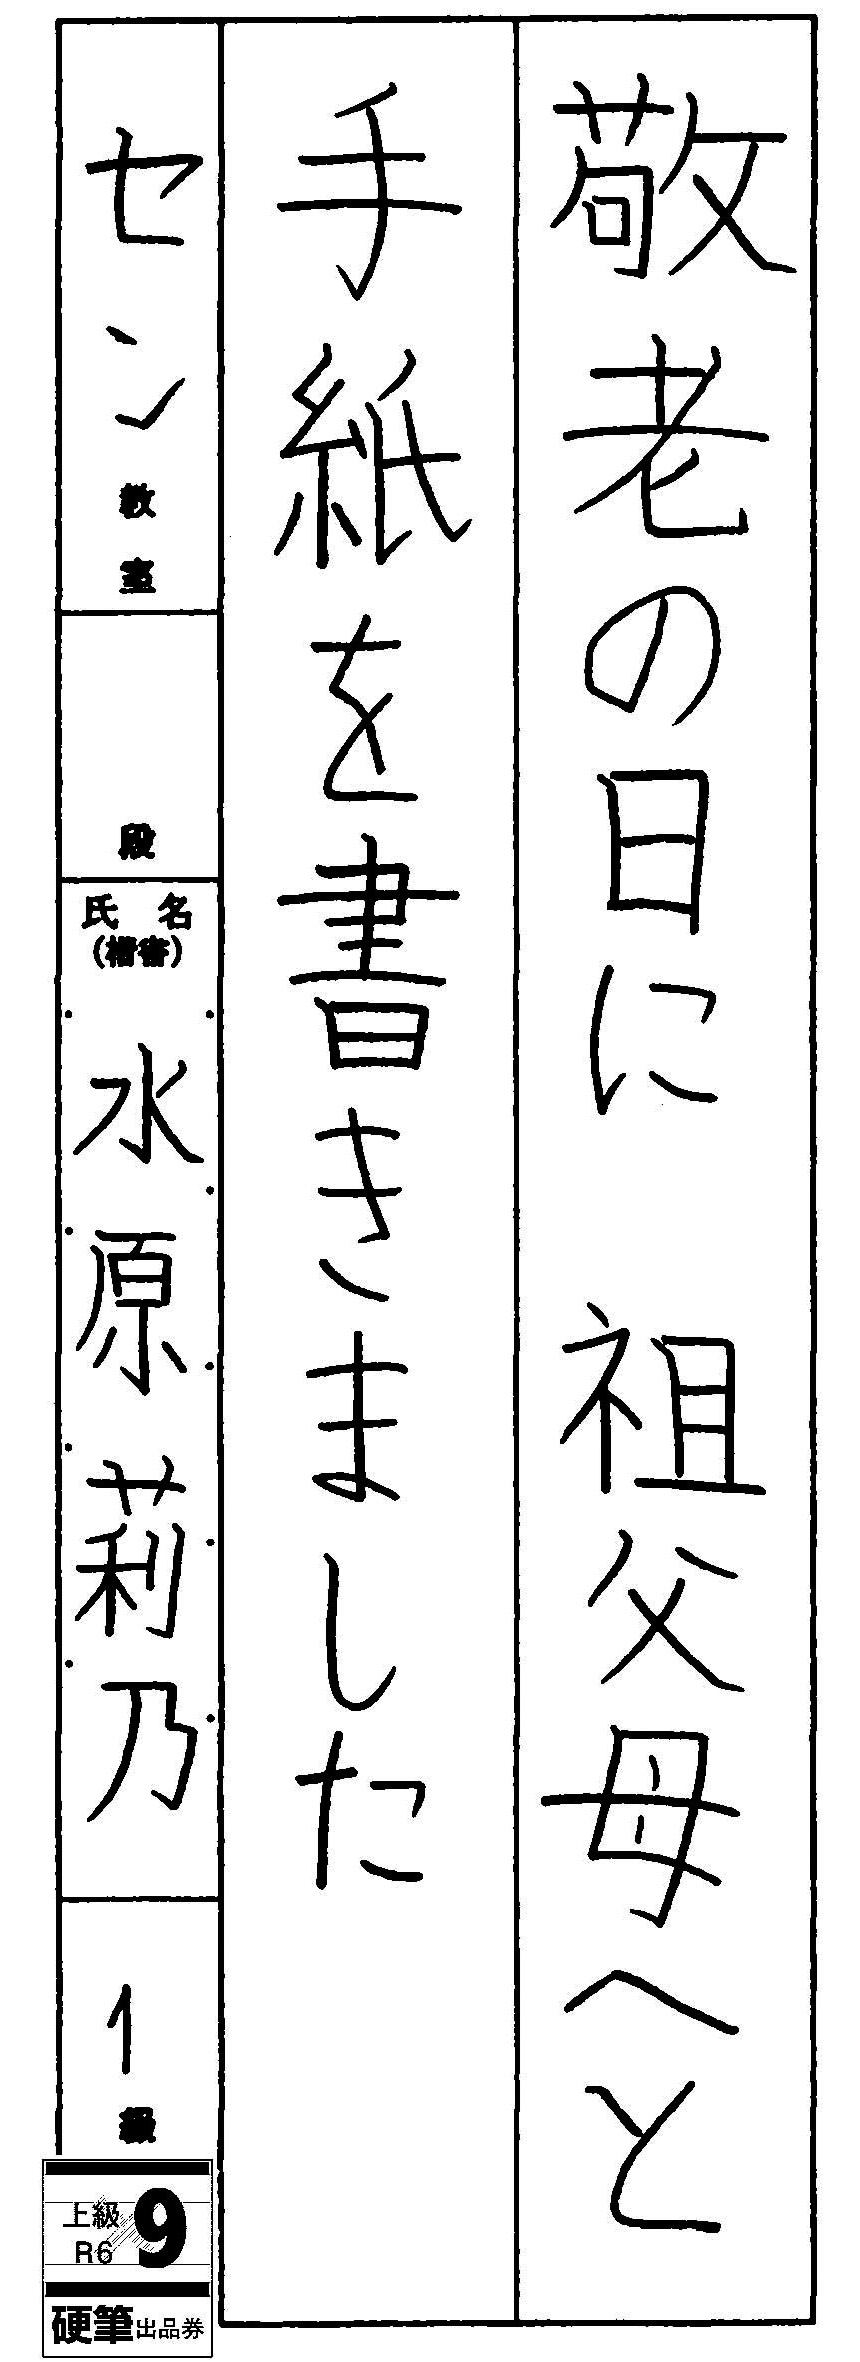 敬老の日に　祖父母へと
手紙を書きました
セン教室
段
氏名
(楷書)
水原莉乃
1級
上級
R6
9
硬筆出品券